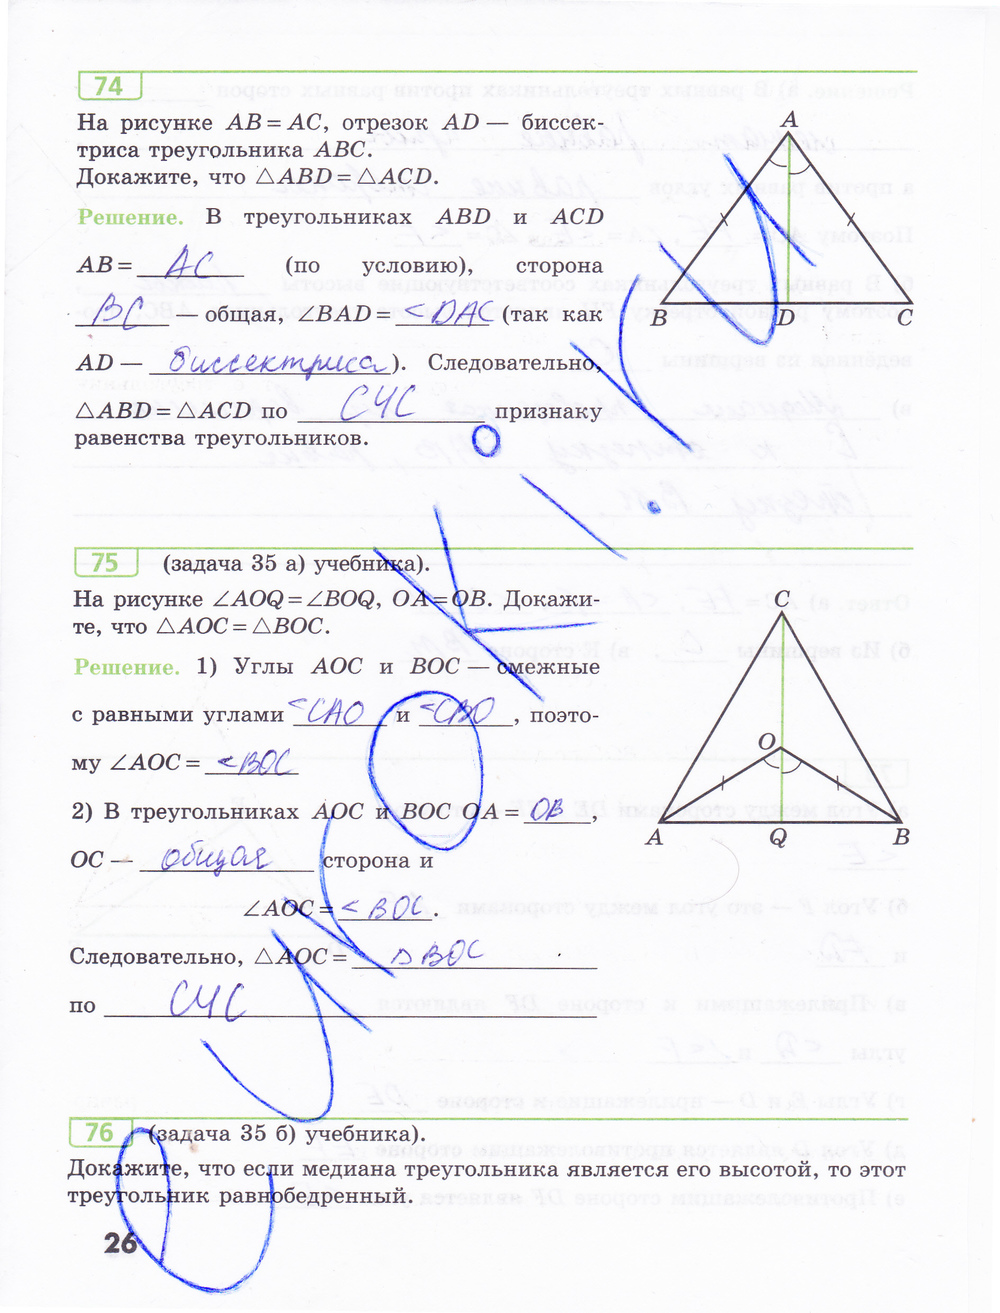 74
На рисунке AB = AC, отрезок AD — биссек-
триса треугольника ABC.
Докажите, что △ABD = △ACD.
Решение. В треугольниках ABD и ACD
AB = AC (по условию), сторона
BC — общая, ∠BAD = <DAC (так как
AD — биссектриса). Следовательно,
△ABD = △ACD по СЧС признаку
равенства треугольников.
A
B
D
C
75 (задача 35 а) учебника).
На рисунке ∠AOQ = ∠BOQ, OA = OB. Докажи-
те, что △AOC = △BOC.
Решение. 1) Углы AOC и BOC — смежные
с равными углами <CAO и <CBO, поэто-
му ∠AOC = <BOC
2) В треугольниках AOC и BOC OA = OB,
OC — общая сторона и
∠AOC = <BOC.
Следовательно, △AOC = △BOC
по СЧС
C
O
A
Q
B
76 (задача 35 б) учебника).
Докажите, что если медиана треугольника является его высотой, то этот
треугольник равнобедренный.
26